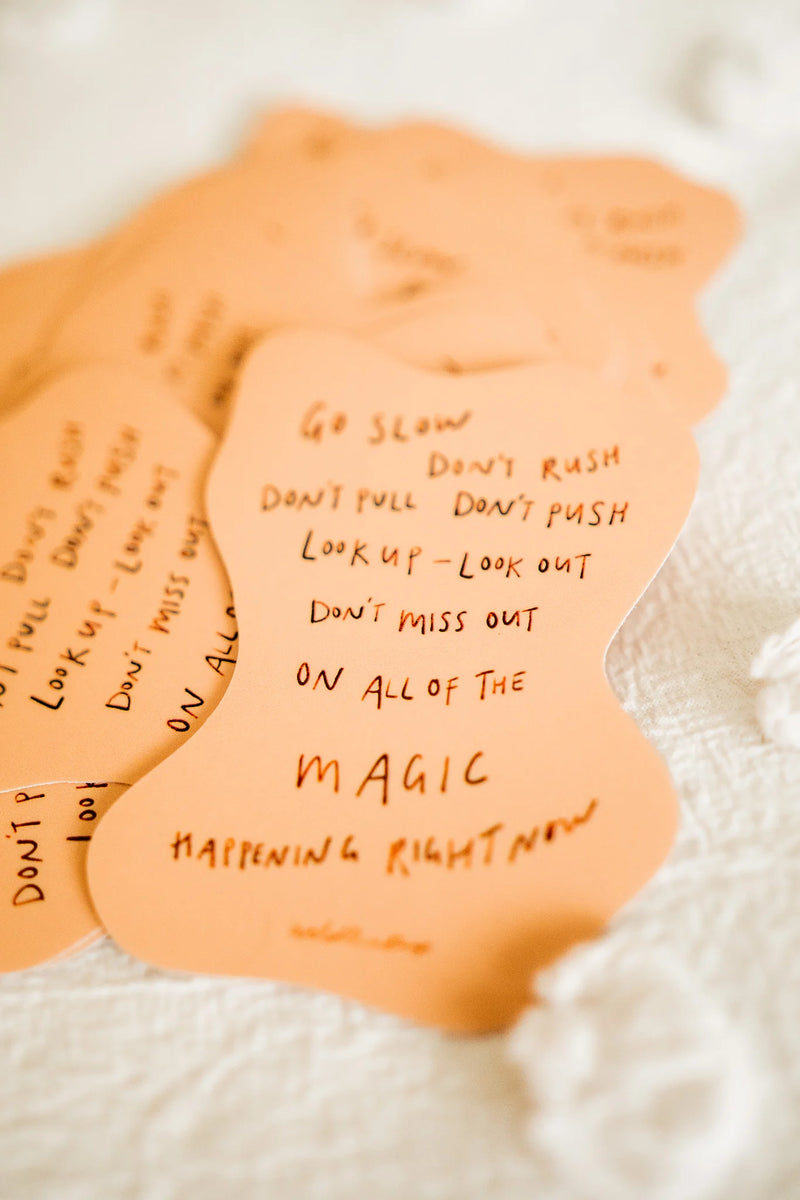 GO SLOW
DON'T RUSH
DON'T PULL DON'T PUSH
LOOK UP - LOOK OUT
DON'T MISS OUT
ON ALL OF THE
MAGIC
HAPPENING RIGHT NOW
DON'T RUSH
PULL DON'T PUSH
LOOK UP - LOOK OUT
DON'T MISS OUT
ON ALL
DON'T P